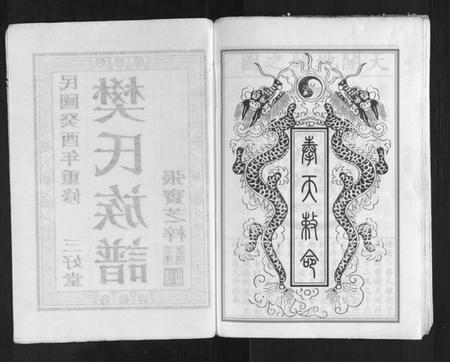 奉天敕命
民國癸酉年重修
三好堂
樊氏族譜
張寶芝梓